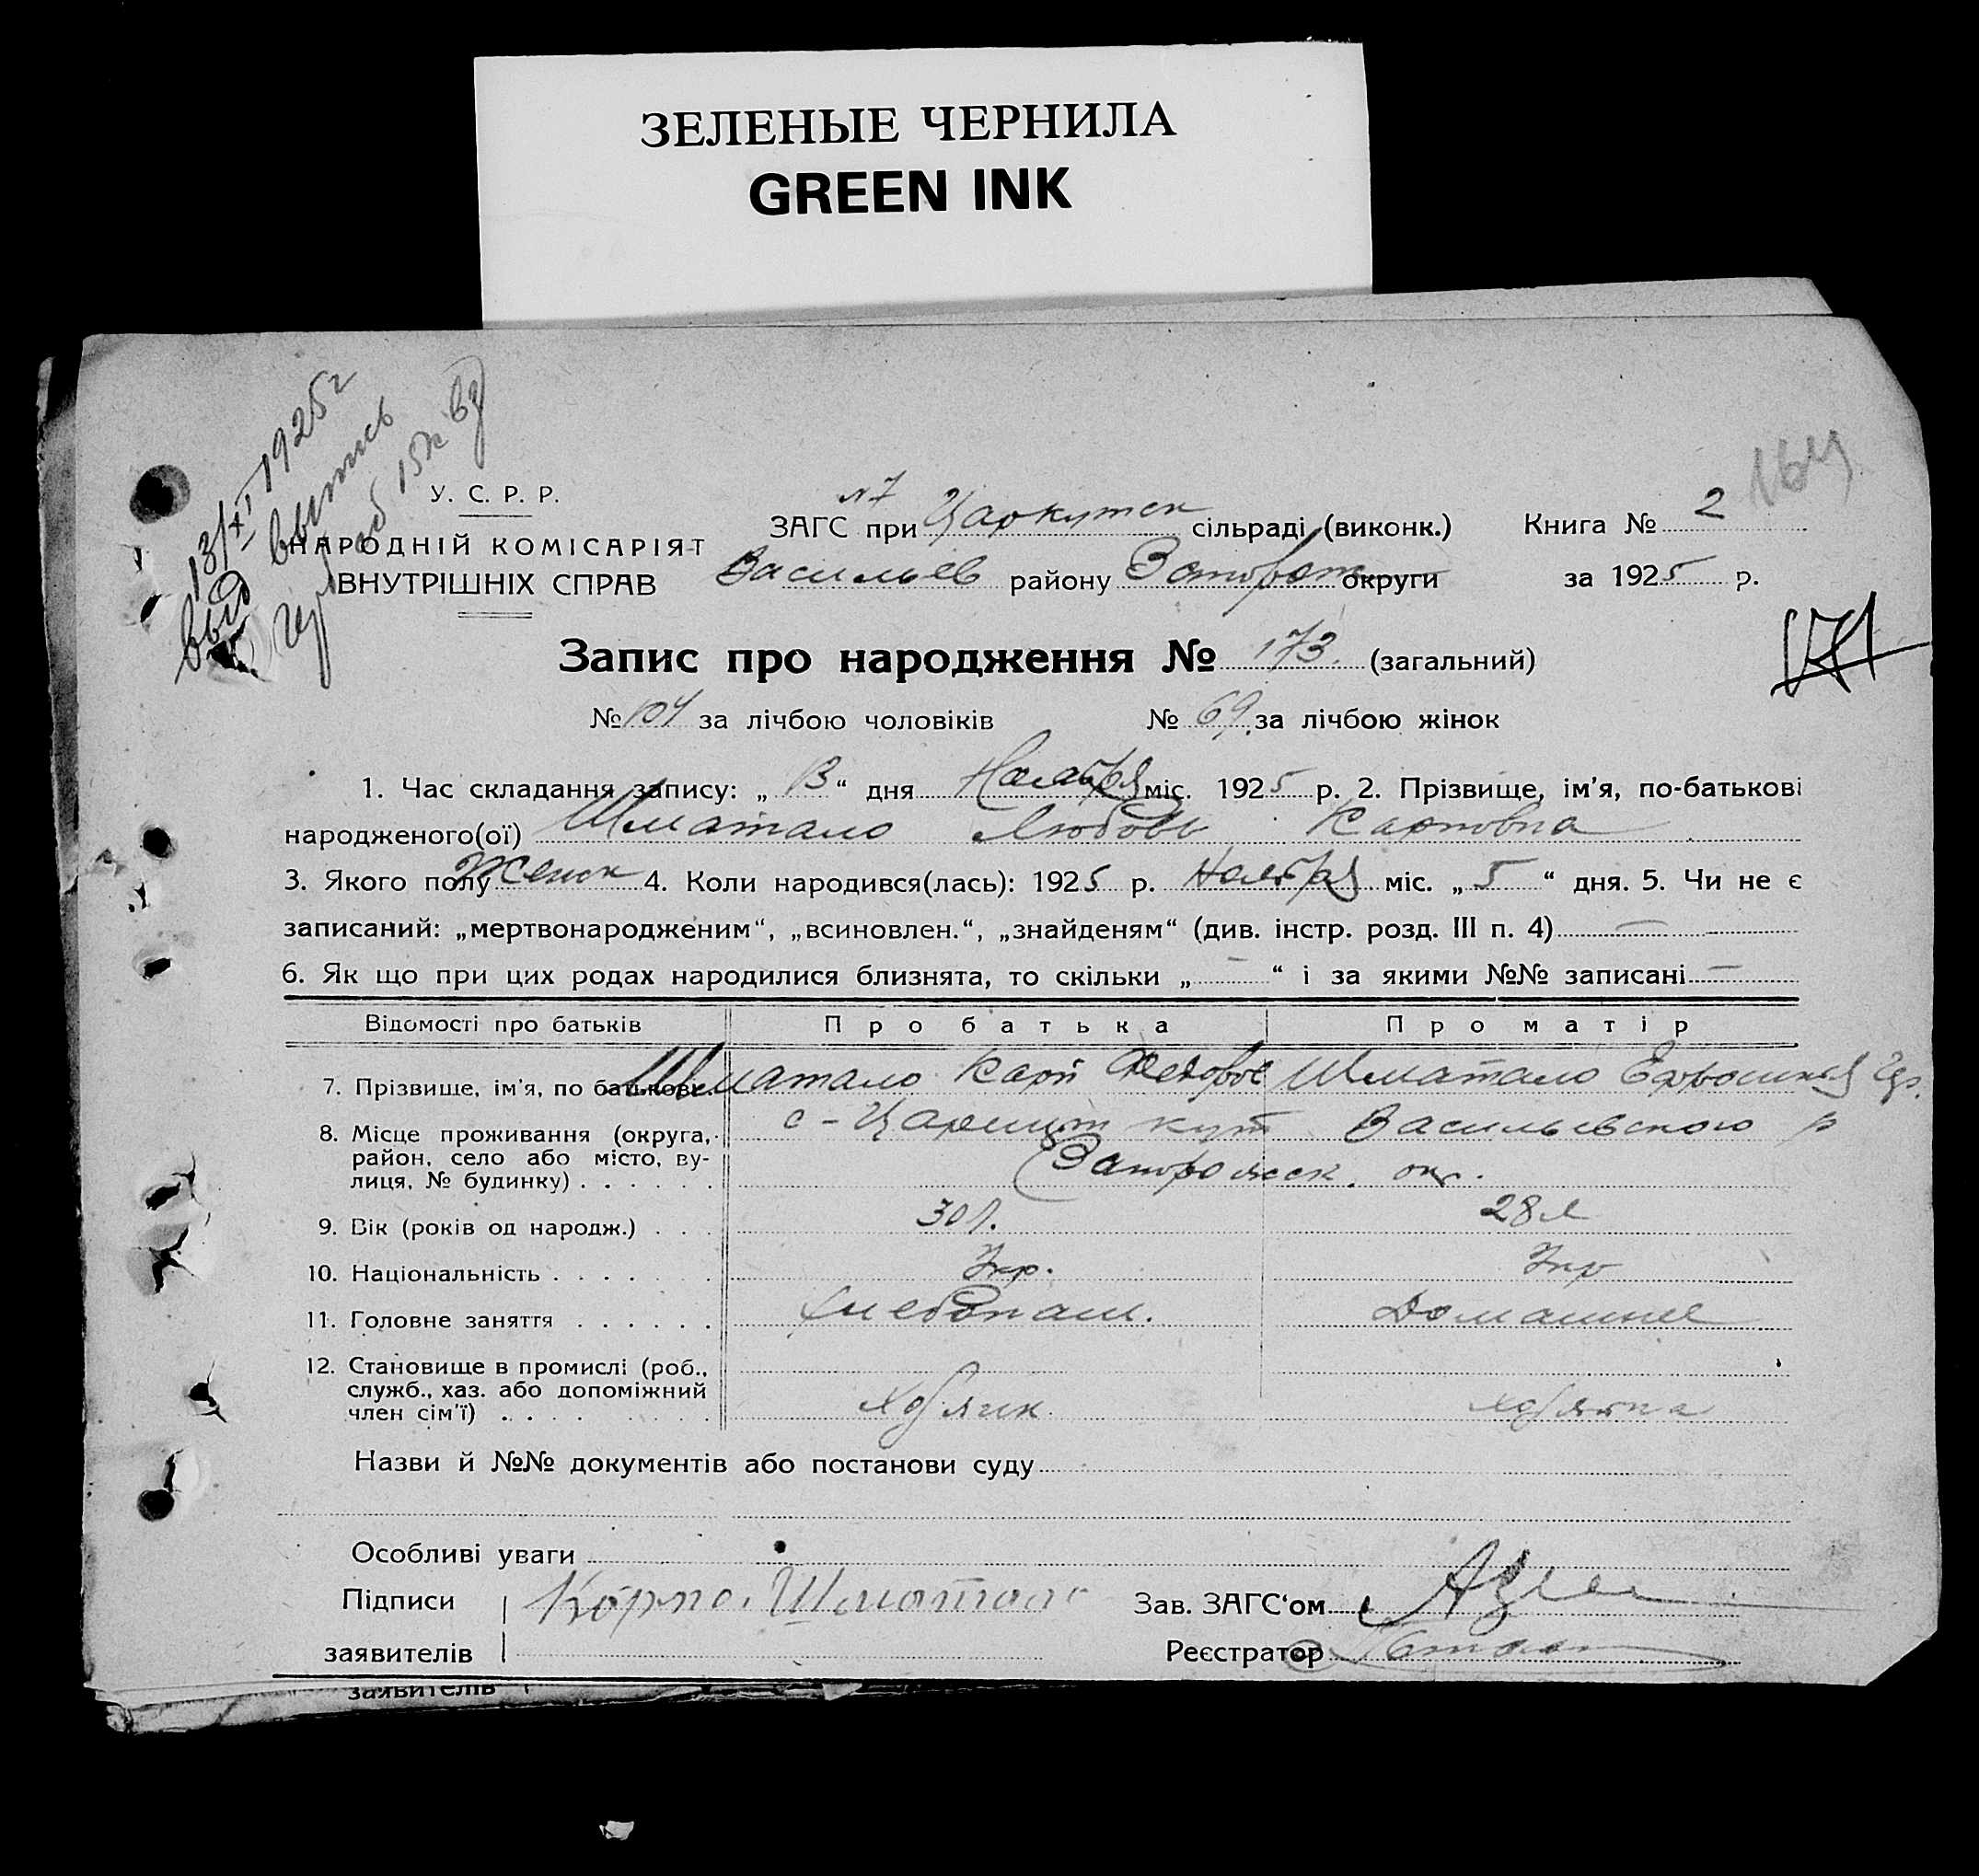 ЗЕЛЕНЫЕ ЧЕРНИЛА
GREEN INK
13/XI 1925 г
выд выпись
15к
164
У. С. Р. Р.
НАРОДНІЙ КОМІСАРІЯТ
ВНУТРІШНІХ СПРАВ
№7
ЗАГС при Царкутск сільраді (виконк.) Книга № 2
Васильев району округи за 1925 р.
171
Запис про народження № 173. (загальний)
№ 104 за лічбою чоловіків № 69 за лічбою жінок
1. Час складання запису: „ 13 “ дня Ноября міс. 1925 р. 2. Прізвище, ім'я, по-батькові
народженого(ої) Шматало Любовь Карповна
3. Якого полу Женск 4. Коли народився(лась): 1925 р. Ноября міс. „ 5 “ дня. 5. Чи не є
записаний: „мертвонародженим“, „всиновлен.“, „знайденям“ (див. інстр. розд. III п. 4) —
6. Як що при цих родах народилися близнята, то скільки „ — “ і за якими №№ записані —
Відомості про батьків Про батька Про матір
7. Прізвище, ім'я, по батькові. Шматало Карп Федоров Шматало
8. Місце проживання (округа, с-Царицын кут Васильевского р
район, село або місто, ву-
лиця, № будинку) . . . . . . Запорожск. окр.
9. Вік (років од народж.) . . . 30 л. 28 л
10. Національність . . . . . . . Укр. Укр
11. Головне заняття . . . . . . Хлебопаш. Домашнее
12. Становище в промислі (роб.,
служб., хаз. або допоміжний
член сім'ї) . . . . . . . . Хозяин Хозяйка
Назви й №№ документів або постанови суду
Особливі уваги
Підписи Карпо. Шматало Зав. ЗАГС'ом
заявителів Реєстратор
заявителів